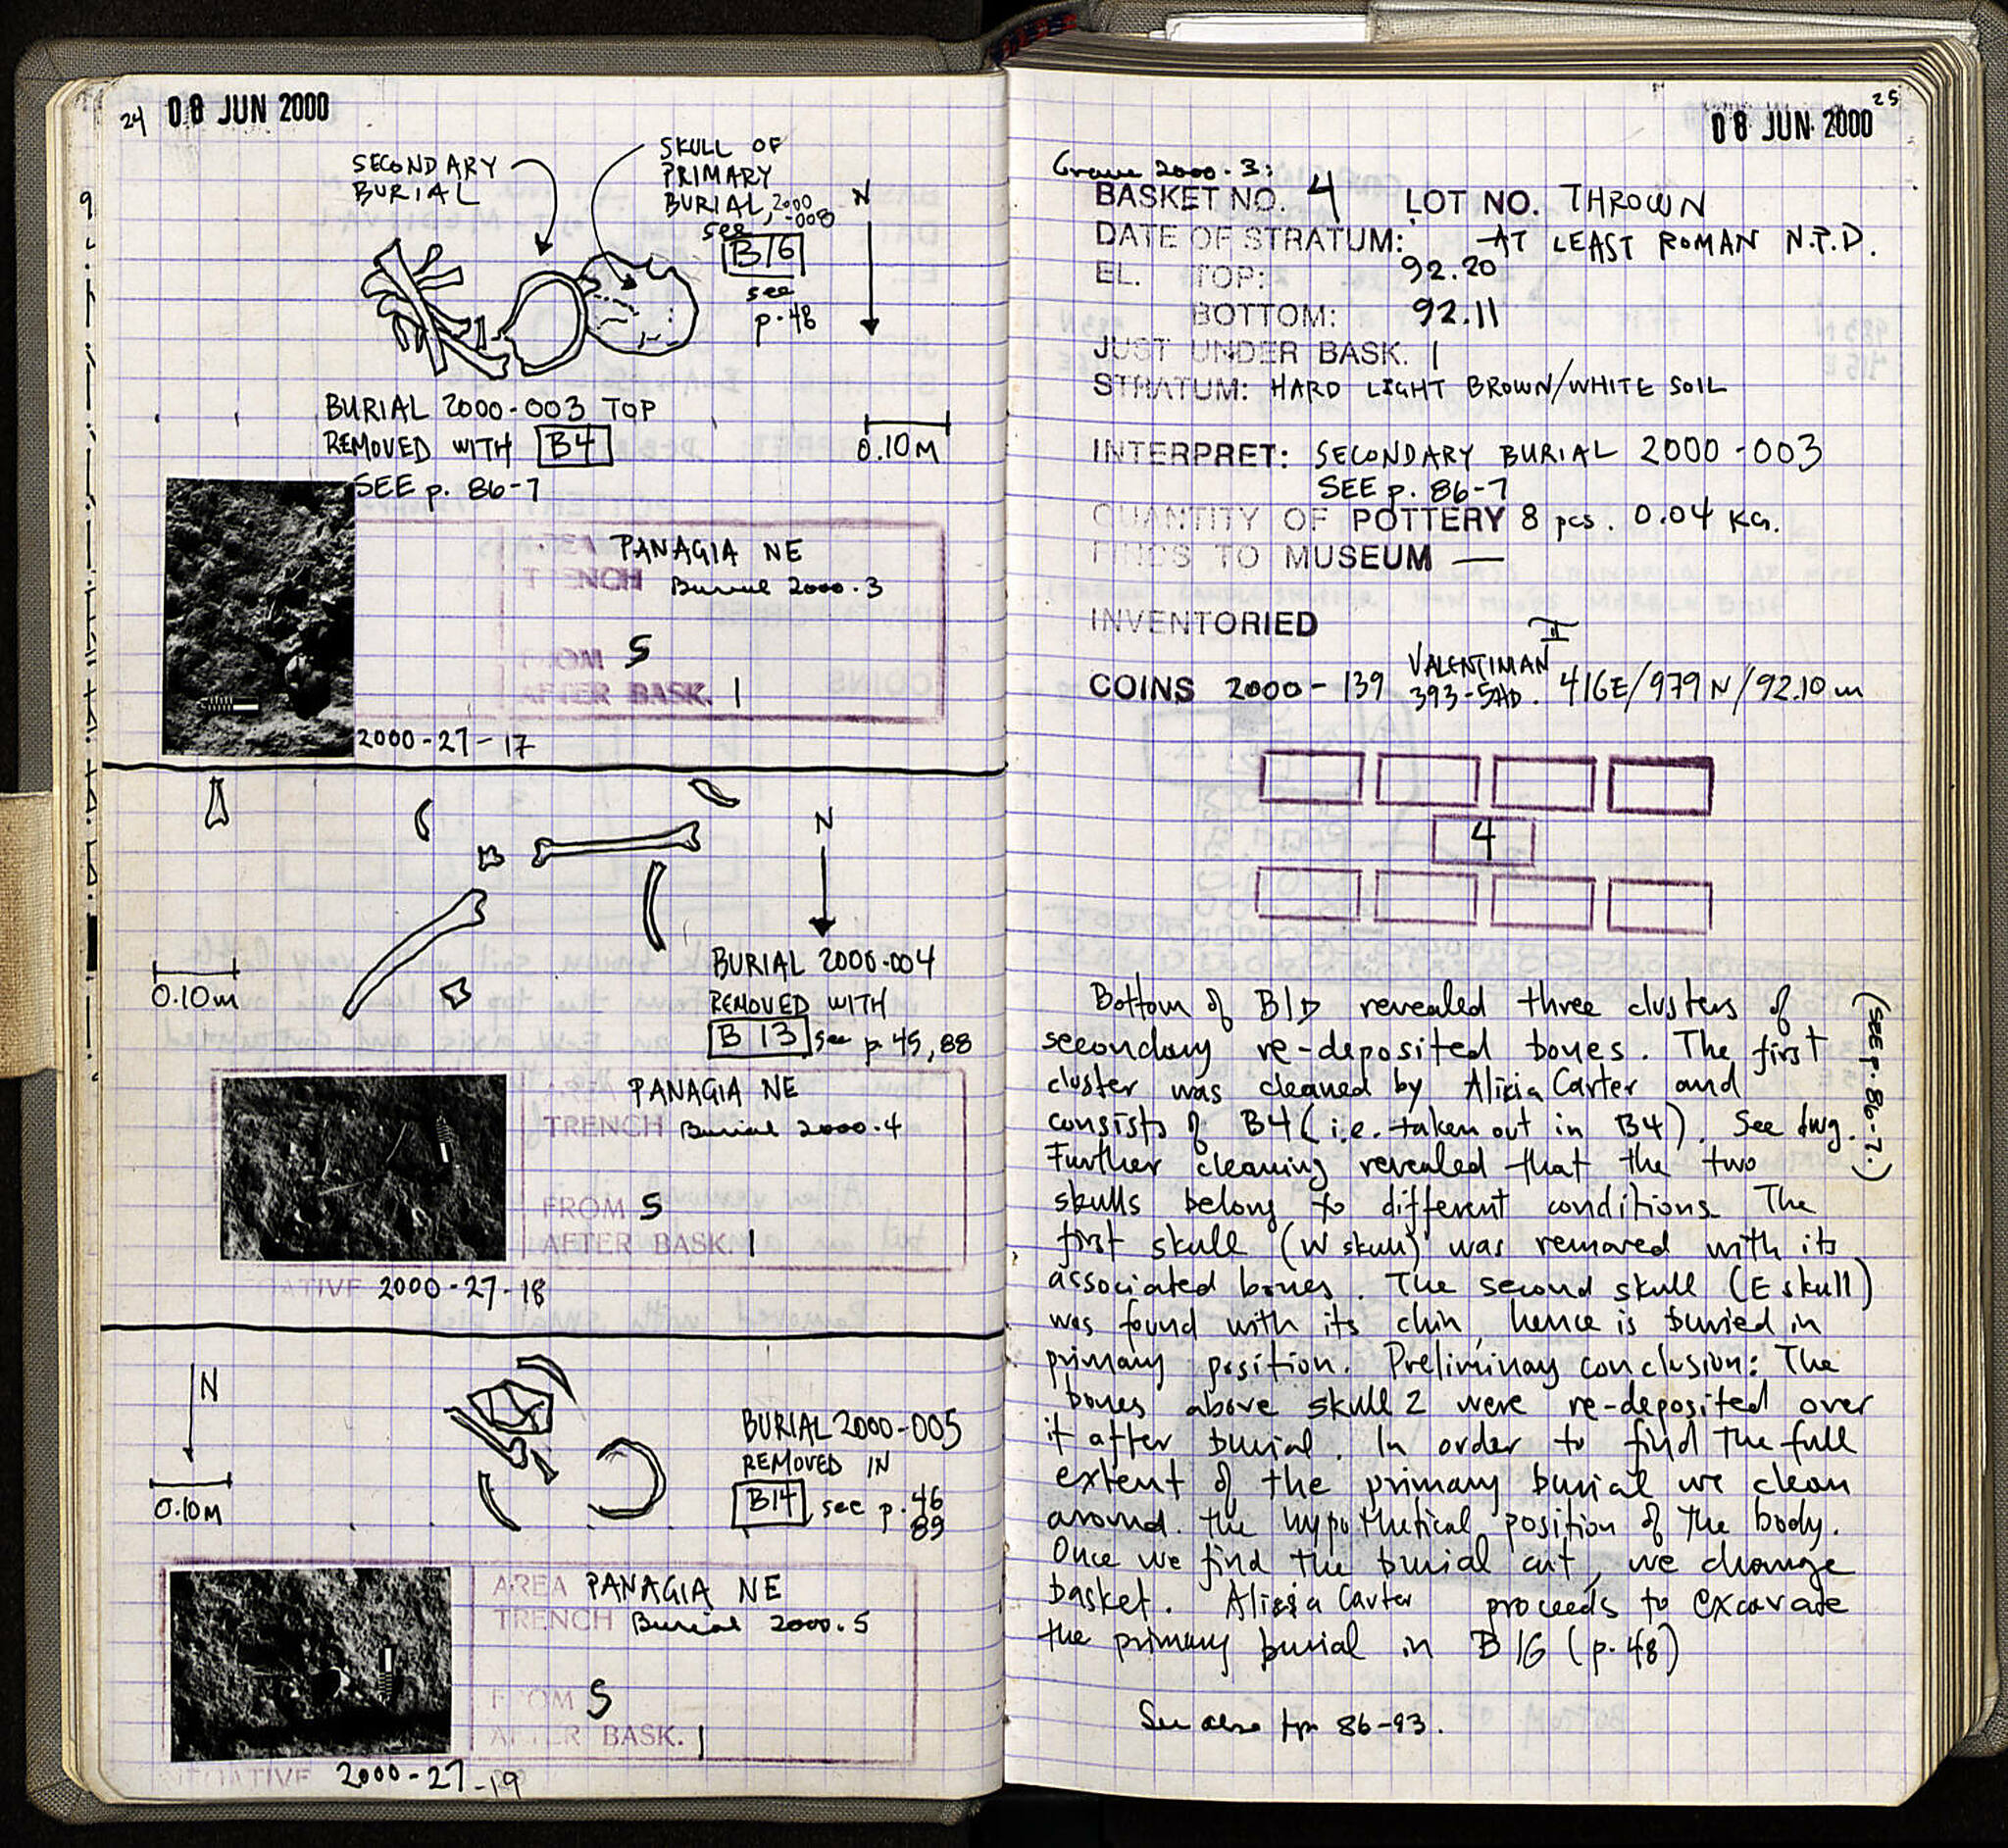 24 08 JUN 2000
SECONDARY
BURIAL
SKULL OF
PRIMARY
BURIAL, 2000
-008
see
B16
see
p. 48
N
BURIAL 2000-003 TOP
REMOVED WITH B4
SEE p. 86-7
0.10 M
PANAGIA NE
TRENCH Burial 2000.3
FROM S
AFTER BASK. 1
2000-27-17
N
0.10m
BURIAL 2000-004
REMOVED WITH
B 13 see p 45, 88
PANAGIA NE
TRENCH Burial 2000.4
FROM S
AFTER BASK. 1
NEGATIVE 2000-27-18
N
0.10M
BURIAL 2000-005
REMOVED IN
B14, see p. 46
89
AREA PANAGIA NE
TRENCH Burial 2000.5
FROM S
AFTER BASK. 1
NEGATIVE 2000-27-19
25
08 JUN 2000
Grave 2000.3:
BASKET NO. 4 LOT NO. THROWN
DATE OF STRATUM: AT LEAST ROMAN N.P.D.
EL. TOP: 92.20
BOTTOM: 92.11
JUST UNDER BASK. 1
STRATUM: HARD LIGHT BROWN/WHITE SOIL
INTERPRET: SECONDARY BURIAL 2000-003
SEE p. 86-7
QUANTITY OF POTTERY 8 pcs. 0.04 KG.
FINDS TO MUSEUM —
INVENTORIED
COINS 2000-139 VALENTINIAN II 393-5AD. 416E/979N/92.10m
4
Bottom of B1D revealed three clusters of
secondary re-deposited bones. The first
cluster was cleaned by Alicia Carter and
consists of B4 (i.e. taken out in B4). See dwg.
(see p. 86-7.)
Further cleaning revealed that the two
skulls belong to different conditions. The
first skull (W skull) was removed with its
associated bones. The second skull (E skull)
was found with its chin, hence is buried in
primary position. Preliminary conclusion: The
bones above skull 2 were re-deposited over
it after burial. In order to find the full
extent of the primary burial we clean
around the hypothetical position of the body.
Once we find the burial cut, we change
basket. Alicia Carter proceeds to excavate
the primary burial in B16 (p. 48)
See also pp. 86-93.